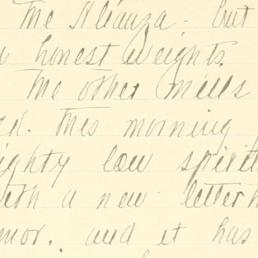 the Alianza - but
honest weights.
The other mills
This morning
mighty low spirit
with a new letterh
humor. and it has